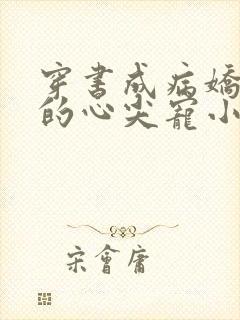 穿書成病嬌
的心尖寵小
宋會庸